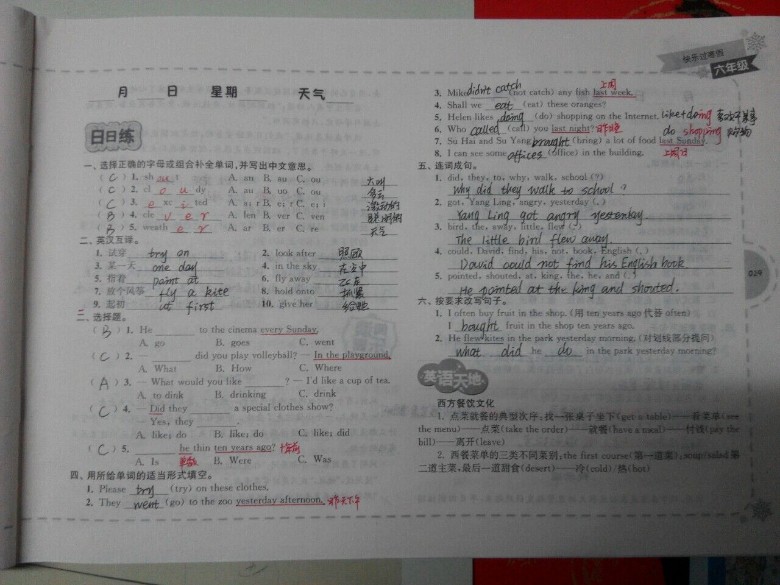 快乐过寒假
六年级
月 日 星期 天气
日日练
一、选择正确的字母或组合补全单词,并写出中文意思。
(C) 1. sh out A. an B. au C. ou 大叫
(C) 2. cl ou dy A. au B. uo C. ou 多云
(C) 3. e xc i ted 激动的
(B) 4. cle v e r A. len B. ver C. ven 聪明的
(B) 5. weath e r A. ar B. er C. re 天气
二、英汉互译。
1. 试穿 try on 2. look after 照顾
3. 某一天 one day 4. in the sky 在空中
5. 指着 point at 6. fly away 飞走
7. 放个风筝 fly a kite 8. hold onto 抓紧
9. 起初 at first 10. give her 给她
三、选择题。
(B) 1. He ____ to the cinema every Sunday.
A. go B. goes C. went
(C) 2. — ____ did you play volleyball? — In the playground.
A. What B. How C. Where
(A) 3. — What would you like ____? — I'd like a cup of tea.
A. to dink B. drinking C. drink
(C) 4. — Did they ____ a special clothes show?
— Yes, they ____.
A. like; do B. like; do C. like; did
(C) 5. ____ he thin ten years ago? 十年前
A. Is B. Were C. Was
四、用所给单词的适当形式填空。
1. Please try (try) on these clothes.
2. They went (go) to the zoo yesterday afternoon. 昨天下午
3. Mike didn't catch (not catch) any fish last week. 上周
4. Shall we eat (eat) these oranges?
5. Helen likes doing (do) shopping on the Internet. like+doing 喜欢干某事
6. Who called (call) you last night? 昨晚 do shopping 购物
7. Su Hai and Su Yang brought (bring) a lot of food last Sunday. 上周日
8. I can see some offices (office) in the building.
五、连词成句。
1. did, they, to, why, walk, school (?)
why did they walk to school ?
2. got, Yang Ling, angry, yesterday (.)
Yang Ling got angry yesterday.
3. bird, the, away, little, flew (.)
The little bird flew away.
4. could, David, find, his, not, book, English (.)
David could not find his English book.
5. pointed, shouted, at, king, the, he, and (.)
He pointed at the king and shouted.
六、按要求改写句子。
1. I often buy fruit in the shop. (用 ten years ago 代替 often)
I bought fruit in the shop ten years ago.
2. He flew kites in the park yesterday morning. (对划线部分提问)
what did he do in the park yesterday morning?
029
英语天地
西方餐饮文化
1. 点菜就餐的典型次序:找一张桌子坐下(get a table)——看菜单(see
the menu)——点菜(take the order)——就餐(have a meal)——付钱(pay the
bill)——离开(leave)
2. 西餐菜单的三类不同菜别:the first course(第一道菜):soup/salad 第
二道主菜,最后一道甜食(desert)——冷(cold)/热(hot)